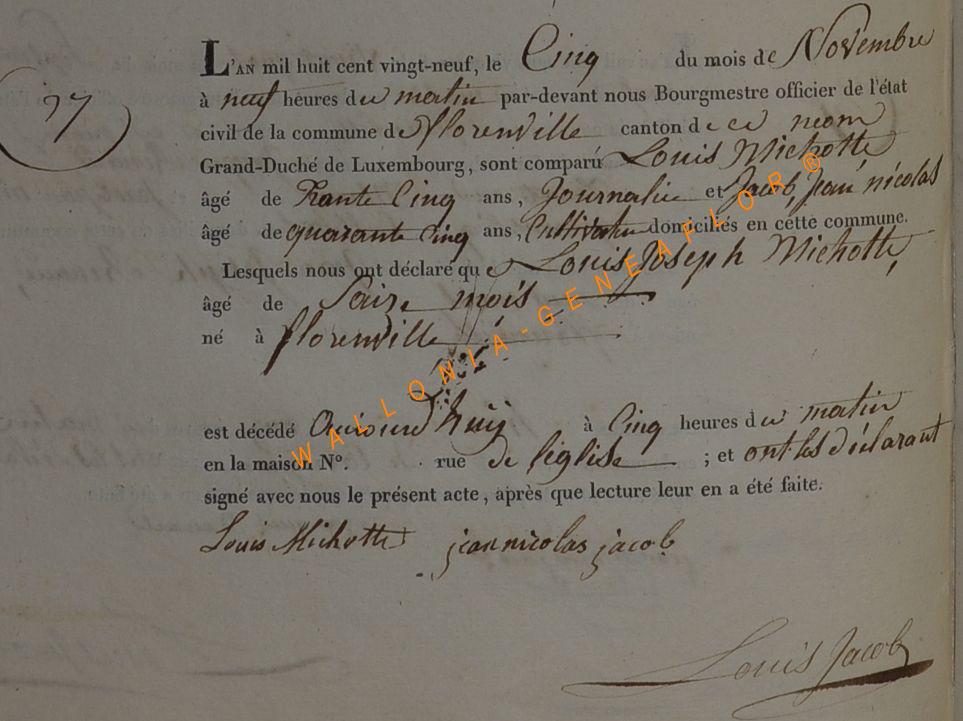 L'AN mil huit cent vingt-neuf, le Cinq du mois de Novembre
à neuf heures du matin par-devant nous Bourgmestre officier de l'état
27
civil de la commune de florenville canton de ce neom
Grand-Duché de Luxembourg, sont comparu Louis Michotte
âgé de Trante Cinq ans, Journalie et Jacob, Jean nicolas
âgé de quarante Cinq ans, Cultivatu domiciliés en cette commune.
Lesquels nous ont déclaré que Louis Joseph Michotte,
âgé de Saize mois
né à florenville
WALLONIA-GENEAFLOR®
est décédé Aujourd'huy à Cinq heures du matin
en la maison Nº. rue de léglise ; et ont les déclarant
signé avec nous le présent acte, après que lecture leur en a été faite.
Louis Michotte jean nicolas jacob
Louis Jacob